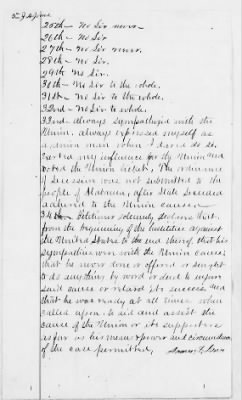 25th - No Sir never.
26th - No Sir
27th - No Sir never.
28th - No Sir.
29th No Sir.
30th - No Sir to the whole.
31st - No Sir to the whole.
32nd - No Sir to whole.
33rd always sympathized with the
Union. always expressed myself as
a union man when I dared do so.
Exerted my influence for the Union and
voted the Union ticket, The ordinance
of secession was not submitted to the
people of Alabama, after State seceded
adhered to the Union cause
34th Petitioner solemnly declares that
from the beginning of the hostilities against
the United States to the end thereof, that his
sympathies were with the Union cause,
that he never done or offered or sought
to do anything by word or deed to injure
said cause or retard its success and
that he was ready at all times when
called upon to aid and assist the
cause of the Union or its supporters
as far as his means & power and circumstances
of the case permitted,